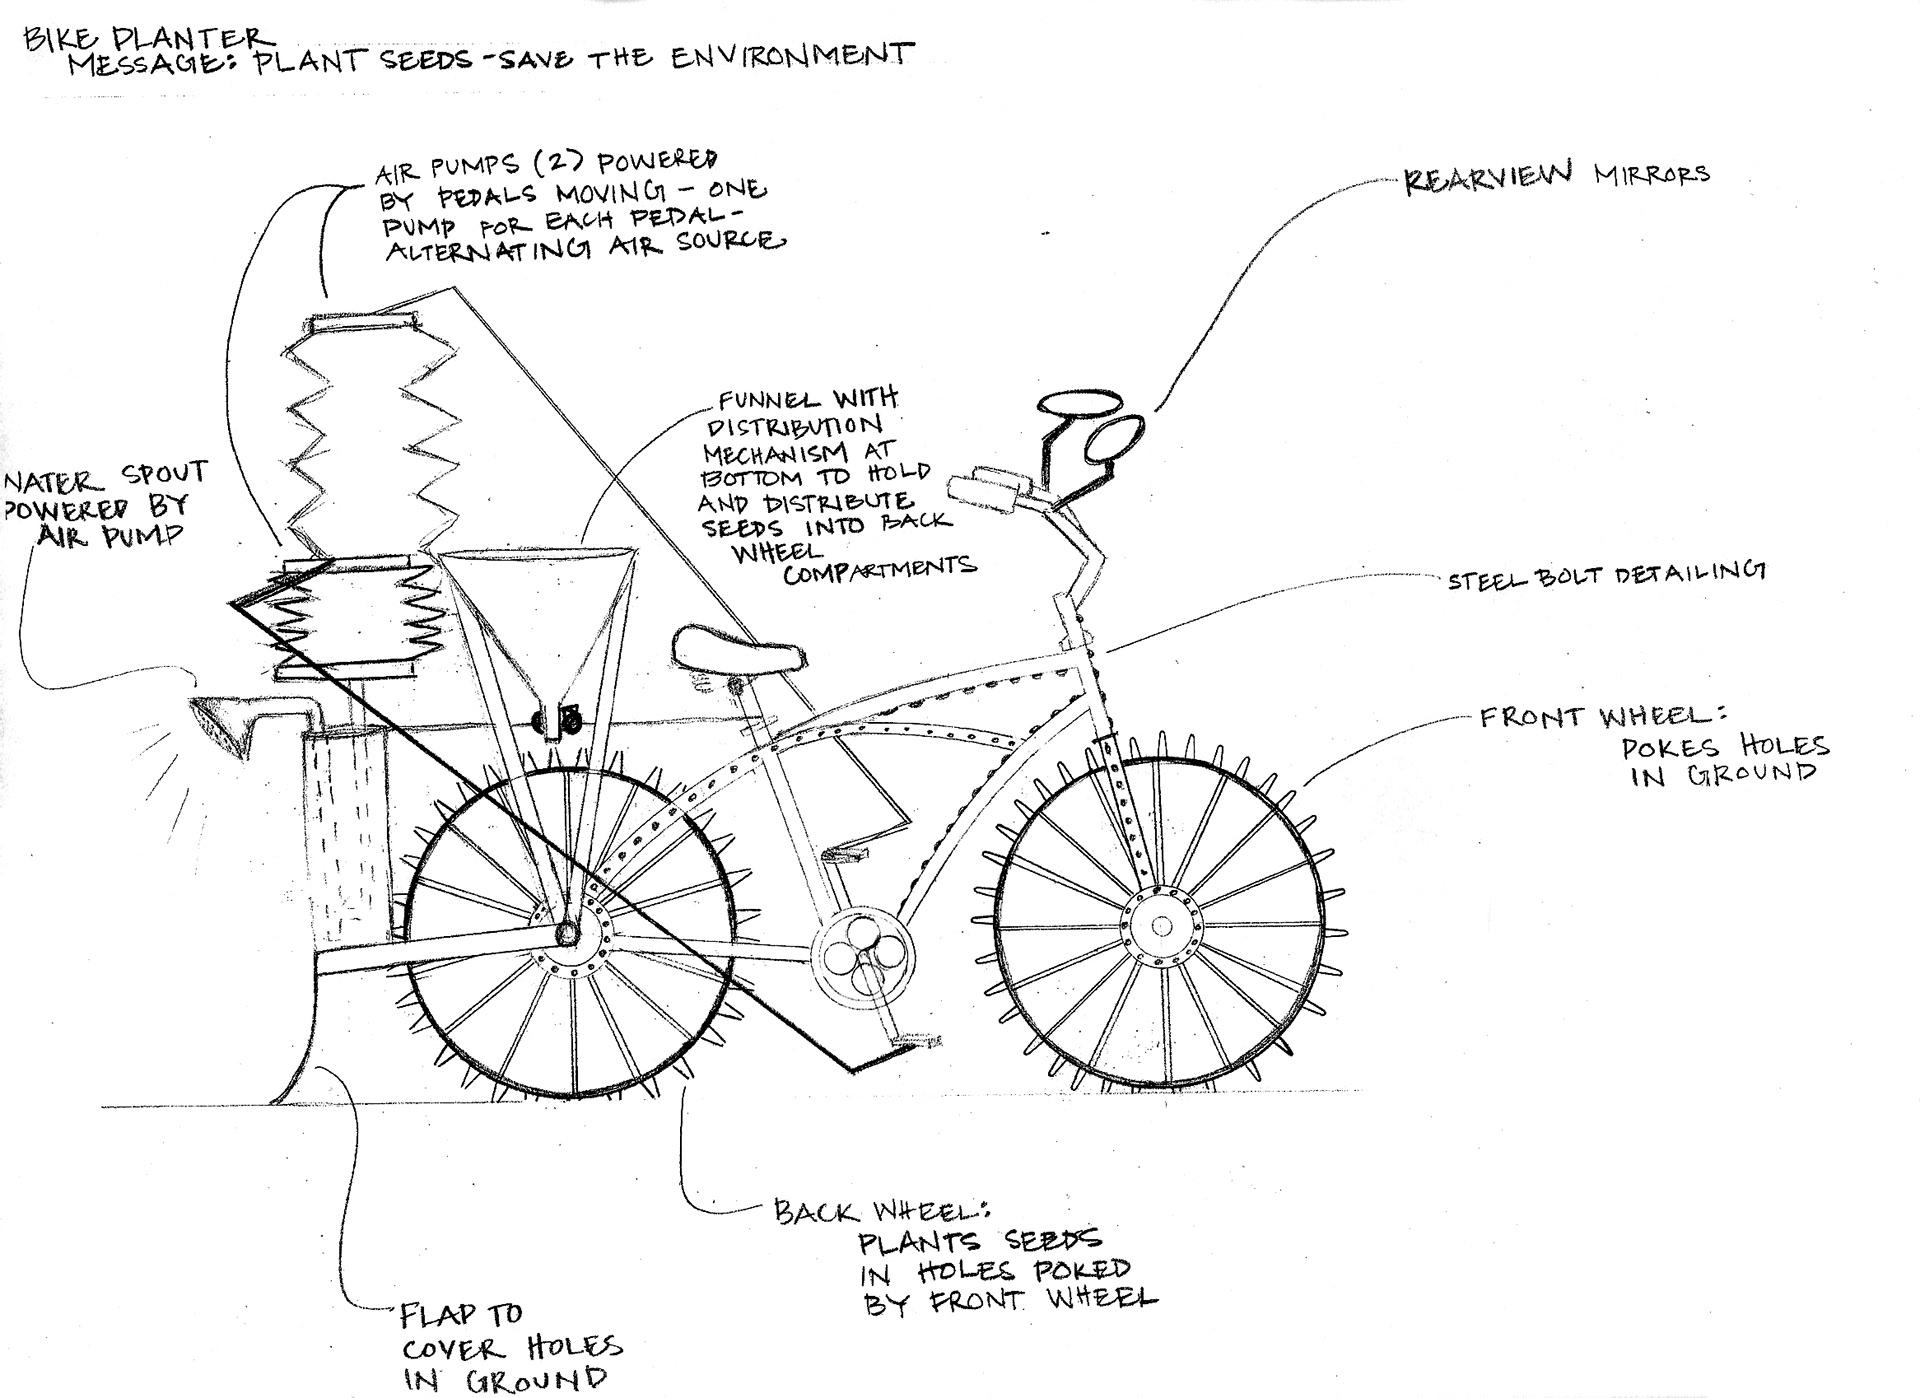 BIKE PLANTER
MESSAGE: PLANT SEEDS - SAVE THE ENVIRONMENT
AIR PUMPS (2) POWERED
BY PEDALS MOVING - ONE
PUMP FOR EACH PEDAL -
ALTERNATING AIR SOURCE
REARVIEW MIRRORS
FUNNEL WITH
DISTRIBUTION
MECHANISM AT
BOTTOM TO HOLD
AND DISTRIBUTE
SEEDS INTO BACK
WHEEL
COMPARTMENTS
WATER SPOUT
POWERED BY
AIR PUMP
STEEL BOLT DETAILING
FRONT WHEEL:
POKES HOLES
IN GROUND
BACK WHEEL:
PLANTS SEEDS
IN HOLES POKED
BY FRONT WHEEL
FLAP TO
COVER HOLES
IN GROUND